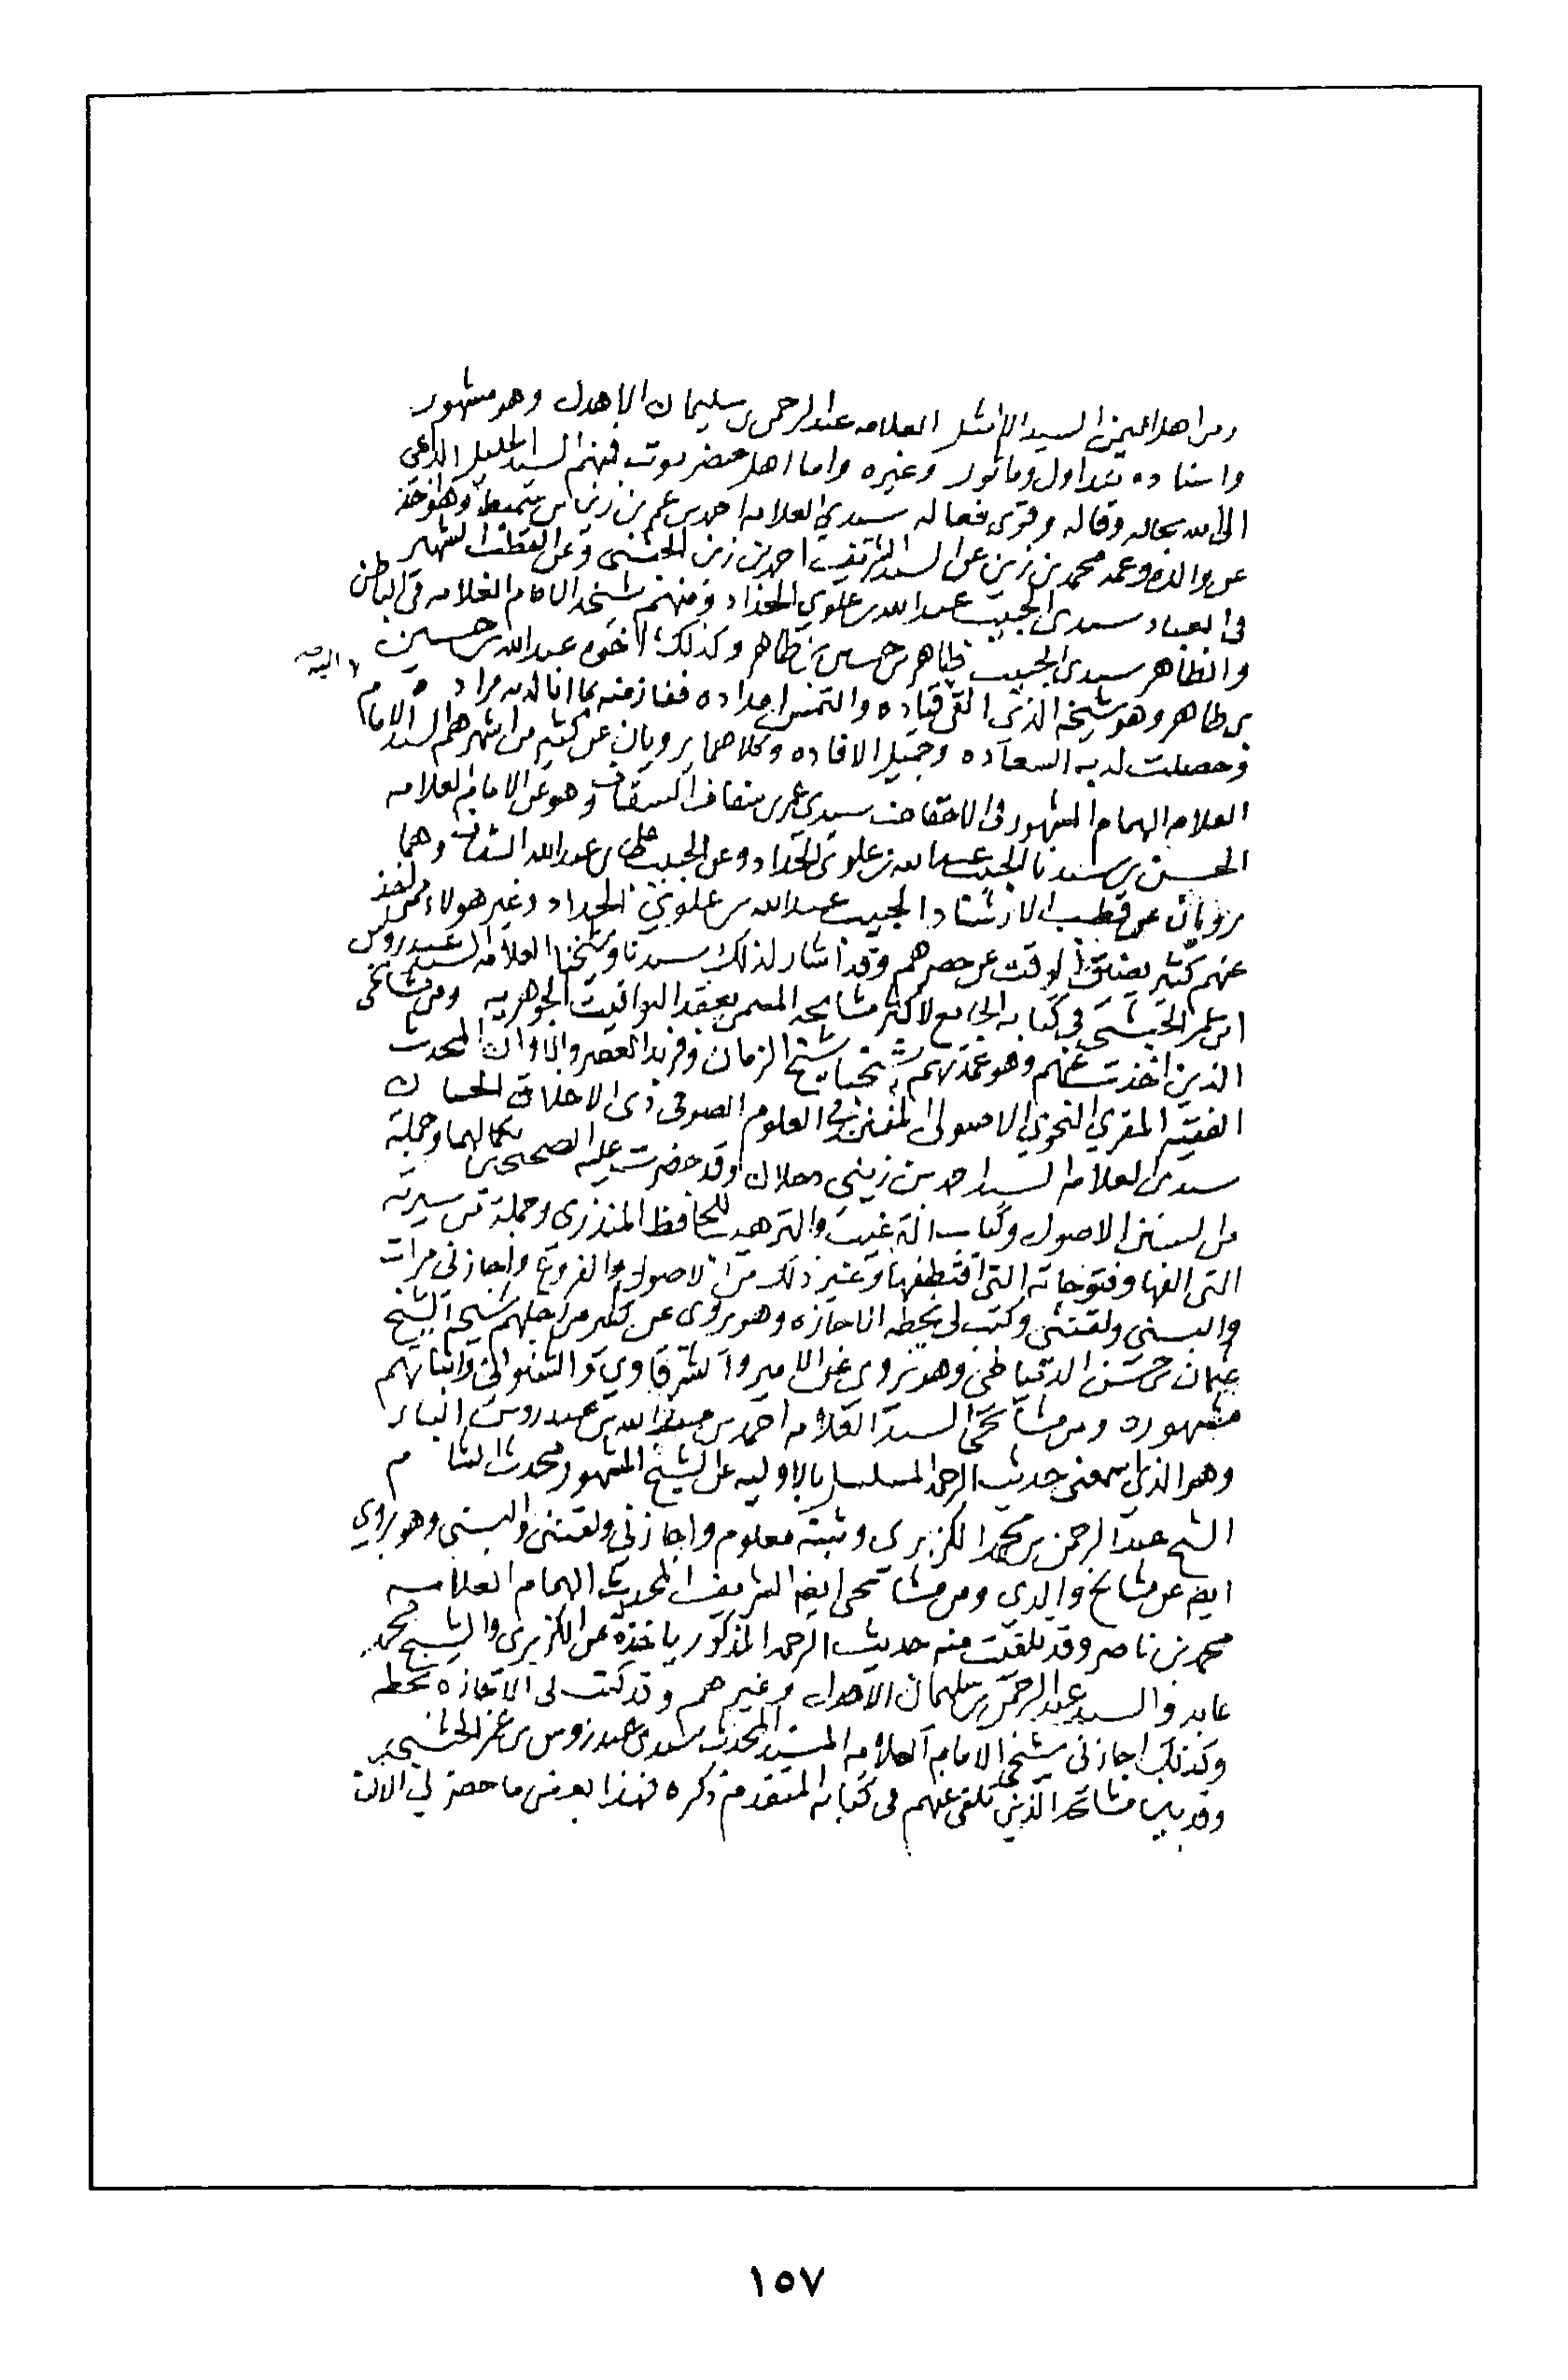 ومن اهل اليمن السيد الامثل العلامه عبد الرحمن بن سليمان الاهدل وهو مشهور
واسناده متداول وماثور وغيره واما اهل حضرموت فمنهم السيد الجليل الداعي
الى الله بحاله وقاله وفعاله سيدي العلامه احمد بن عمر بن زين بن سميط وهو اخذ
عن والده وعمه محمد بن زين عن السيد الشريف احمد بن زين الحبشي وعن القطب الشهير
في العباد سيدي الحبيب عبد الله بن علوي الحداد ومنهم شيخه الامام العلامه في الباطن
والظاهر سيدي الحبيب طاهر بن حسين بن طاهر وكذلك اخوه عبد الله بن حسين
بن طاهر وهو شيخه الذي القى قياده والتمس امداده ففاز منه بما اناله مراده
وحصلت لديه السعاده وجميل الافاده وكلاهما يرويان عن كثير من اشهرهم السيد الامام
العلامه الهمام المشهور في الاحقاف سيدي عمر بن سقاف السقاف وهو عن الامام العلامه
الحسن بن سيدنا الحبيب عبد الله بن علوي الحداد وعن الحبيب علي بن عبد الله السقاف وهما
يرويان عن قطب الارشاد الحبيب عبد الله بن علوي الحداد وغير هولاء ممن اخذ
عنهم كثير يضيق الوقت عن حصرهم وقد اشار لذلك سيدنا وشيخنا العلامه السيد عيدروس
ابن عمر الحبشي في كتابه الجامع لاكثر مشايخه المسمى بعقد اليواقيت الجوهريه ومن مشايخي
الذين اخذت عنهم وهو عمدتهم شيخنا شيخ الزمان وفريد العصر والاوان المحدث
الفقيه المقري النحوي الاصولي المفنن في العلوم الصوفي ذي الاخلاق الحسان
سيدي العلامه السيد احمد بن زيني دحلان وقد حضرت عليه الصحيحين بكمالهما وجملة
من السنن الاصول وكتاب الترغيب والترهيب للحافظ المنذري وجملة من سيرته
التي الفها وفتوحاته التي اقتطفها وغير ذلك من الاصول والفروع واجازني مرات
والبسني ولقنني وكتب لي بخطه الاجازه وهو يروي عن كثير من اجلهم شيخه الشيخ
عثمان بن حسن الدمياطي وهو يروي عن الامير والشرقاوي والشنواني واثباتهم
مشهوره ومن مشايخي السيد العلامه احمد بن عبد الله بن عيدروس البار
وهو الذي اسمعني حديث الرحمه المسلسل بالاوليه عن الشيخ المشهور محدث الشام
الشيخ عبد الرحمن بن محمد الكزبري وثبته معلوم واجازني ولقنني والبسني وهو يروي
ايضا عن مشايخ والدي ومن مشايخي ايضا الشريف المحدث الهمام العلامه
محمد بن ناصر وقد تلقيت منه حديث الرحمه المذكور ياخذه عن الكزبري والشيخ محمد
عابد والسيد عبد الرحمن بن سليمان الاهدل وغيرهم وقد كتب لي الاجازه بخطه
وكذلك اجازني شيخي الامام العلامه المسند المحدث سيدي عيدروس بن عمر الحبشي
وقد بين مشايخه الذين تلقى عنهم في كتابه المتقدم ذكره فهذا بعض ما حضر لي الان
١٥٧